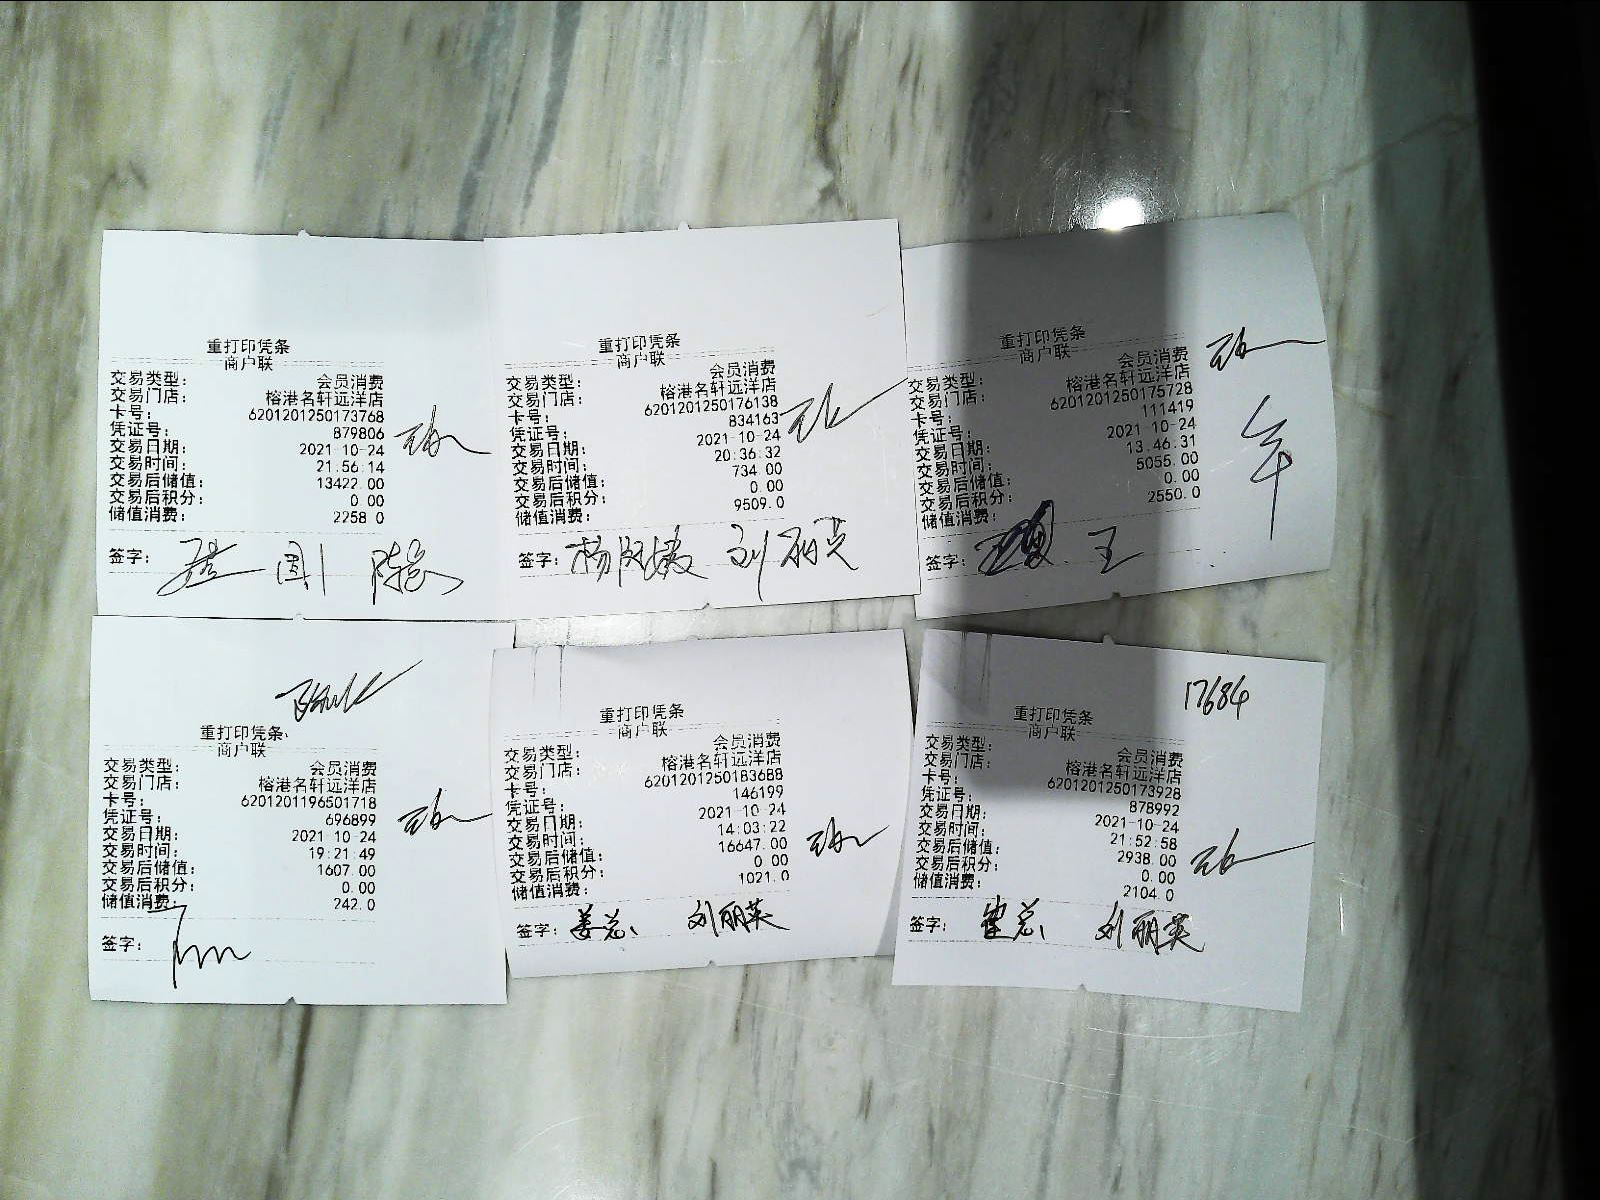 重打印凭条
商户联
交易类型： 会员消费
交易门店： 榕港名轩远洋店
卡号： 6201201250173768
凭证号： 879806
交易日期： 2021-10-24
交易时间： 21:56:14
交易后储值： 13422.00
交易后积分： 0.00
储值消费： 2258.0
签字：
重打印凭条
商户联
交易类型： 会员消费
交易门店： 榕港名轩远洋店
卡号： 6201201250176138
凭证号： 834163
交易日期： 2021-10-24
交易时间： 20:36:32
交易后储值： 734.00
交易后积分： 0.00
储值消费： 9509.0
签字： 刘丽英
重打印凭条
商户联
交易类型： 会员消费
交易门店： 榕港名轩远洋店
卡号： 6201201250175728
凭证号： 111419
交易日期： 2021-10-24
交易时间： 13:46:31
交易后储值： 5055.00
交易后积分： 0.00
储值消费： 2550.0
签字： 王
重打印凭条
商户联
交易类型： 会员消费
交易门店： 榕港名轩远洋店
卡号： 6201201196501718
凭证号： 696899
交易日期： 2021-10-24
交易时间： 19:21:49
交易后储值： 1607.00
交易后积分： 0.00
储值消费： 242.0
签字：
重打印凭条
商户联
交易类型： 会员消费
交易门店： 榕港名轩远洋店
卡号： 6201201250183688
凭证号： 146199
交易日期： 2021-10-24
交易时间： 14:03:22
交易后储值： 16647.00
交易后积分： 0.00
储值消费： 1021.0
签字： 姜总 刘丽英
17684
重打印凭条
商户联
交易类型： 会员消费
交易门店： 榕港名轩远洋店
卡号： 6201201250173928
凭证号： 878992
交易日期： 2021-10-24
交易时间： 21:52:58
交易后储值： 2938.00
交易后积分： 0.00
储值消费： 2104.0
签字： 刘丽英